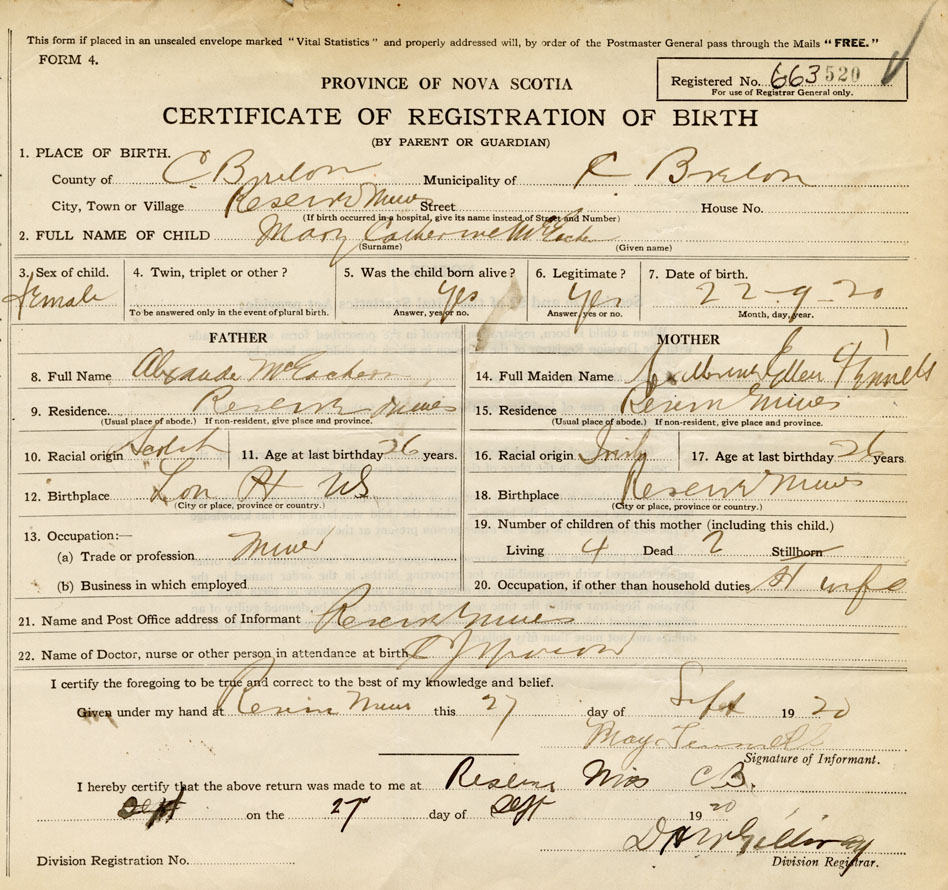 This form if placed in an unsealed envelope marked "Vital Statistics" and properly addressed will, by order of the Postmaster General pass through the Mails "FREE."
FORM 4.
PROVINCE OF NOVA SCOTIA
Registered No. 663 520
For use of Registrar General only.
CERTIFICATE OF REGISTRATION OF BIRTH
(BY PARENT OR GUARDIAN)
1. PLACE OF BIRTH.
County of C Breton Municipality of C Breton
City, Town or Village Reserve Mines Street House No.
(If birth occurred in a hospital, give its name instead of Street and Number)
2. FULL NAME OF CHILD Mary Catherine McEachern
(Surname) (Given name)
3. Sex of child. 4. Twin, triplet or other? 5. Was the child born alive? 6. Legitimate? 7. Date of birth.
female yes yes 22-9-20
To be answered only in the event of plural birth. Answer, yes or no. Answer, yes or no. Month, day, year.
FATHER MOTHER
8. Full Name McEachern
14. Full Maiden Name Ellen
9. Residence. Reserve Mines
15. Residence Reserve Mines
(Usual place of abode.) If non-resident, give place and province.
(Usual place of abode.) If non-resident, give place and province.
10. Racial origin Scotch 11. Age at last birthday 26 years.
16. Racial origin Irish 17. Age at last birthday 26 years.
12. Birthplace
(City or place, province or country.)
18. Birthplace Reserve Mines
(City or place, province or country.)
13. Occupation:—
(a) Trade or profession Miner
(b) Business in which employed
19. Number of children of this mother (including this child.)
Living 4 Dead 2 Stillborn
20. Occupation, if other than household duties H wife
21. Name and Post Office address of Informant Reserve Mines
22. Name of Doctor, nurse or other person in attendance at birth
I certify the foregoing to be true and correct to the best of my knowledge and belief.
Given under my hand at Reserve Mines this 27 day of Sept 1920
May
Signature of Informant.
I hereby certify that the above return was made to me at Reserve Mines C B.
on the 27 day of Sept 1920
Division Registration No. Division Registrar.